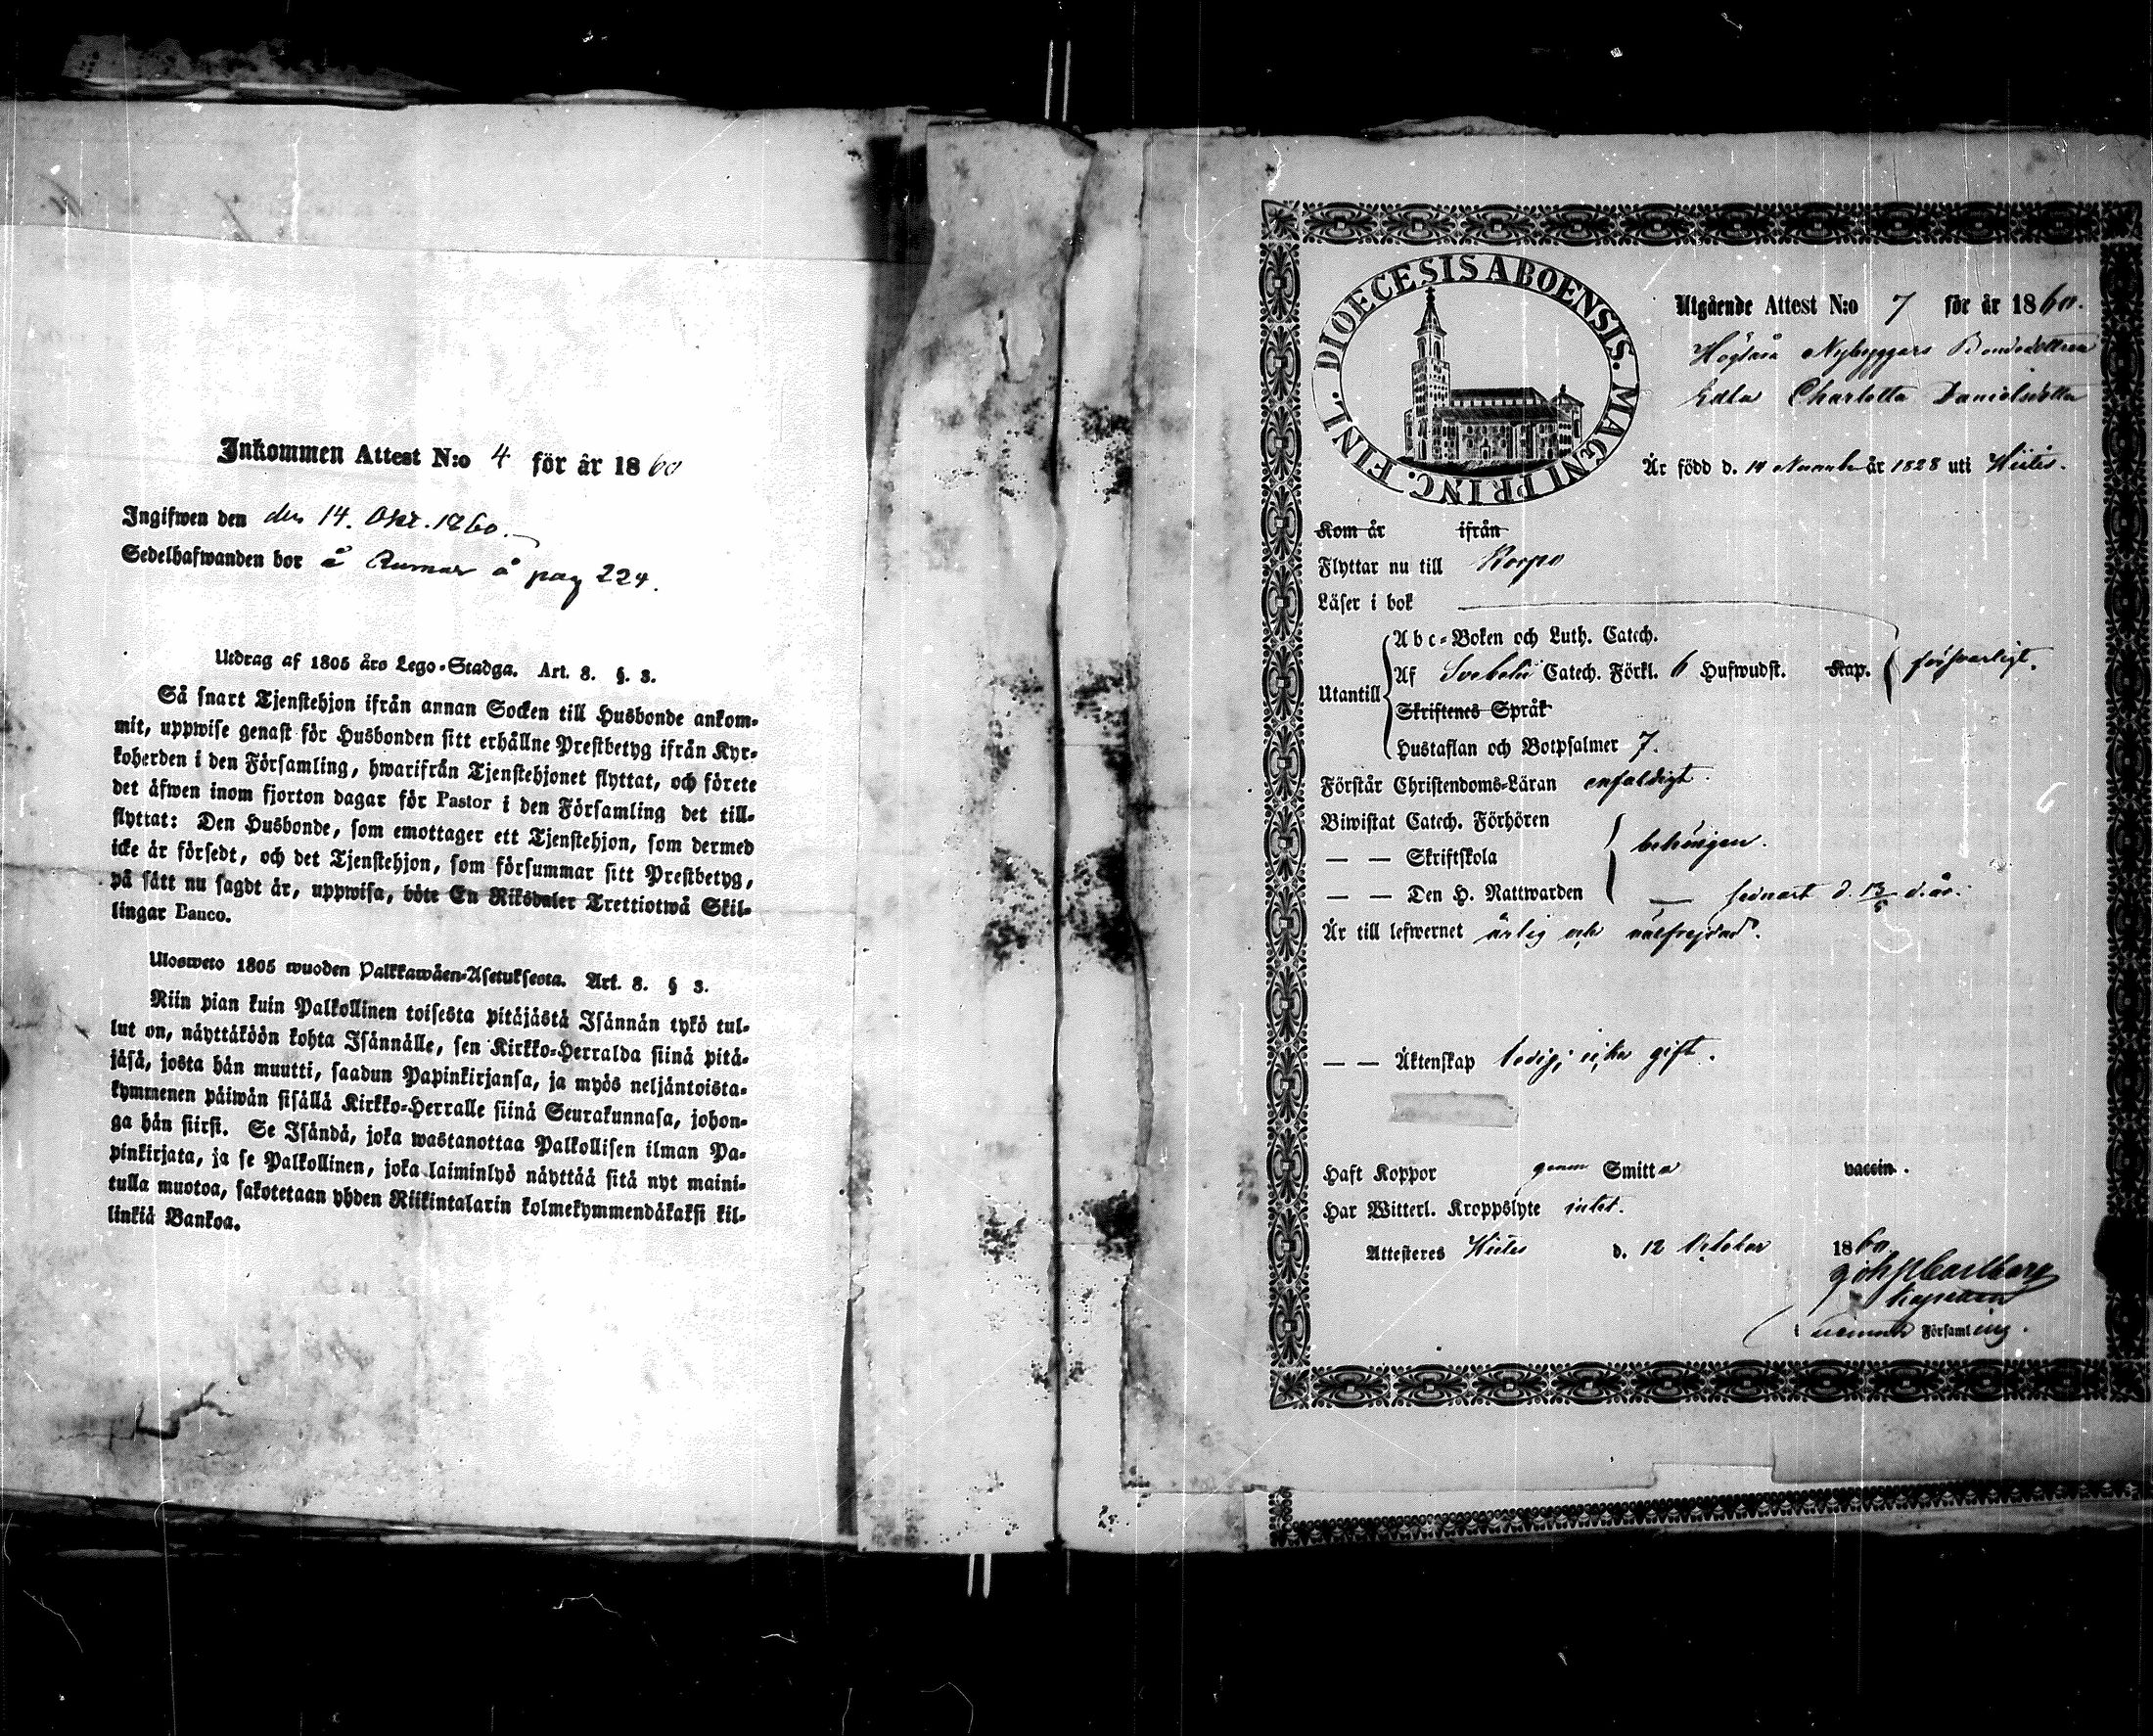 Inkommen Attest N:o 4 för år 1860
Ingifwen den den 14. Okt. 1860.
Sedelhafwanden bor å Rumar å pag 224.
Utdrag af 1805 års Lego-Stadga. Art. 8. §. 3.
Så snart Tjenstehjon ifrån annan Socken till Husbonde ankom-
mit, uppwise genast för Husbonden sitt erhållne Prestbetyg ifrån Kyr-
koherden i den Församling, hwarifrån Tjenstehjonet flyttat, och förete
det äfwen inom fjorton dagar för Pastor i den Församling det till-
flyttat: Den Husbonde, som emottager ett Tjenstehjon, som dermed
icke är försedt, och det Tjenstehjon, som försummar sitt Prestbetyg,
på sätt nu sagdt är, uppwisa, böte En Riksdaler Trettiotwå Skil-
lingar Banco.
Ulosweto 1805 wuoden Palkkawäen-Asetuksesta. Art. 8. § 3.
Niin pian kuin Palkollinen toisesta pitäjästä Isännän tykö tul-
lut on, näyttäköön kohta Isännälle, sen Kirkko-Herralda siinä pitä-
jäsä, josta hän muutti, saadun Papinkirjansa, ja myös neljäntoista-
kymmenen päiwän sisällä Kirkko-Herralle siinä Seurakunnasa, johon-
ga hän siirsi. Se Isändä, joka wastanottaa Palkollisen ilman Pa-
pinkirjata, ja se Palkollinen, joka laiminlyö näyttää sitä nyt maini-
tulla muotoa, sakotetaan yhden Riikintalarin kolmekymmendäkaksi kil-
linkiä Bankoa.
DIOECESIS ABOENSIS. MAGNI PRINC. FINL.
Utgående Attest N:o 7 för år 1860.
Högsåra Nybyggars Bondedottren
Edla Charlotta Danielsdotter
Är född d. 14 November år 1828 uti Hiitis.
Kom år ifrån
Flyttar nu till Korpo
Läser i bok
Utantill
Abc-Boken och Luth. Catech.
Af Svebelii Catech. Förkl. 6 Hufwudst. Kap. försvarligt.
Skriftenes Språk
Hustaflan och Botpsalmer 7.
Förstår Christendoms-Läran enfaldigt.
Biwistat Catech. Förhören
— — Skriftskola behörigen.
— — Den H. Nattwarden — senast d. 13/5 d. år.
Är till lefwernet ärlig och välfrejdad.
— — Äktenskap ledig; icke gift.
Haft Koppor genom Smitta vaccin.
Har Witterl. Kroppslyte intet.
Attesteres Hiitis d. 12 October 1860.
Joh. Carlberg
Kapellan
i nämnde Församling.